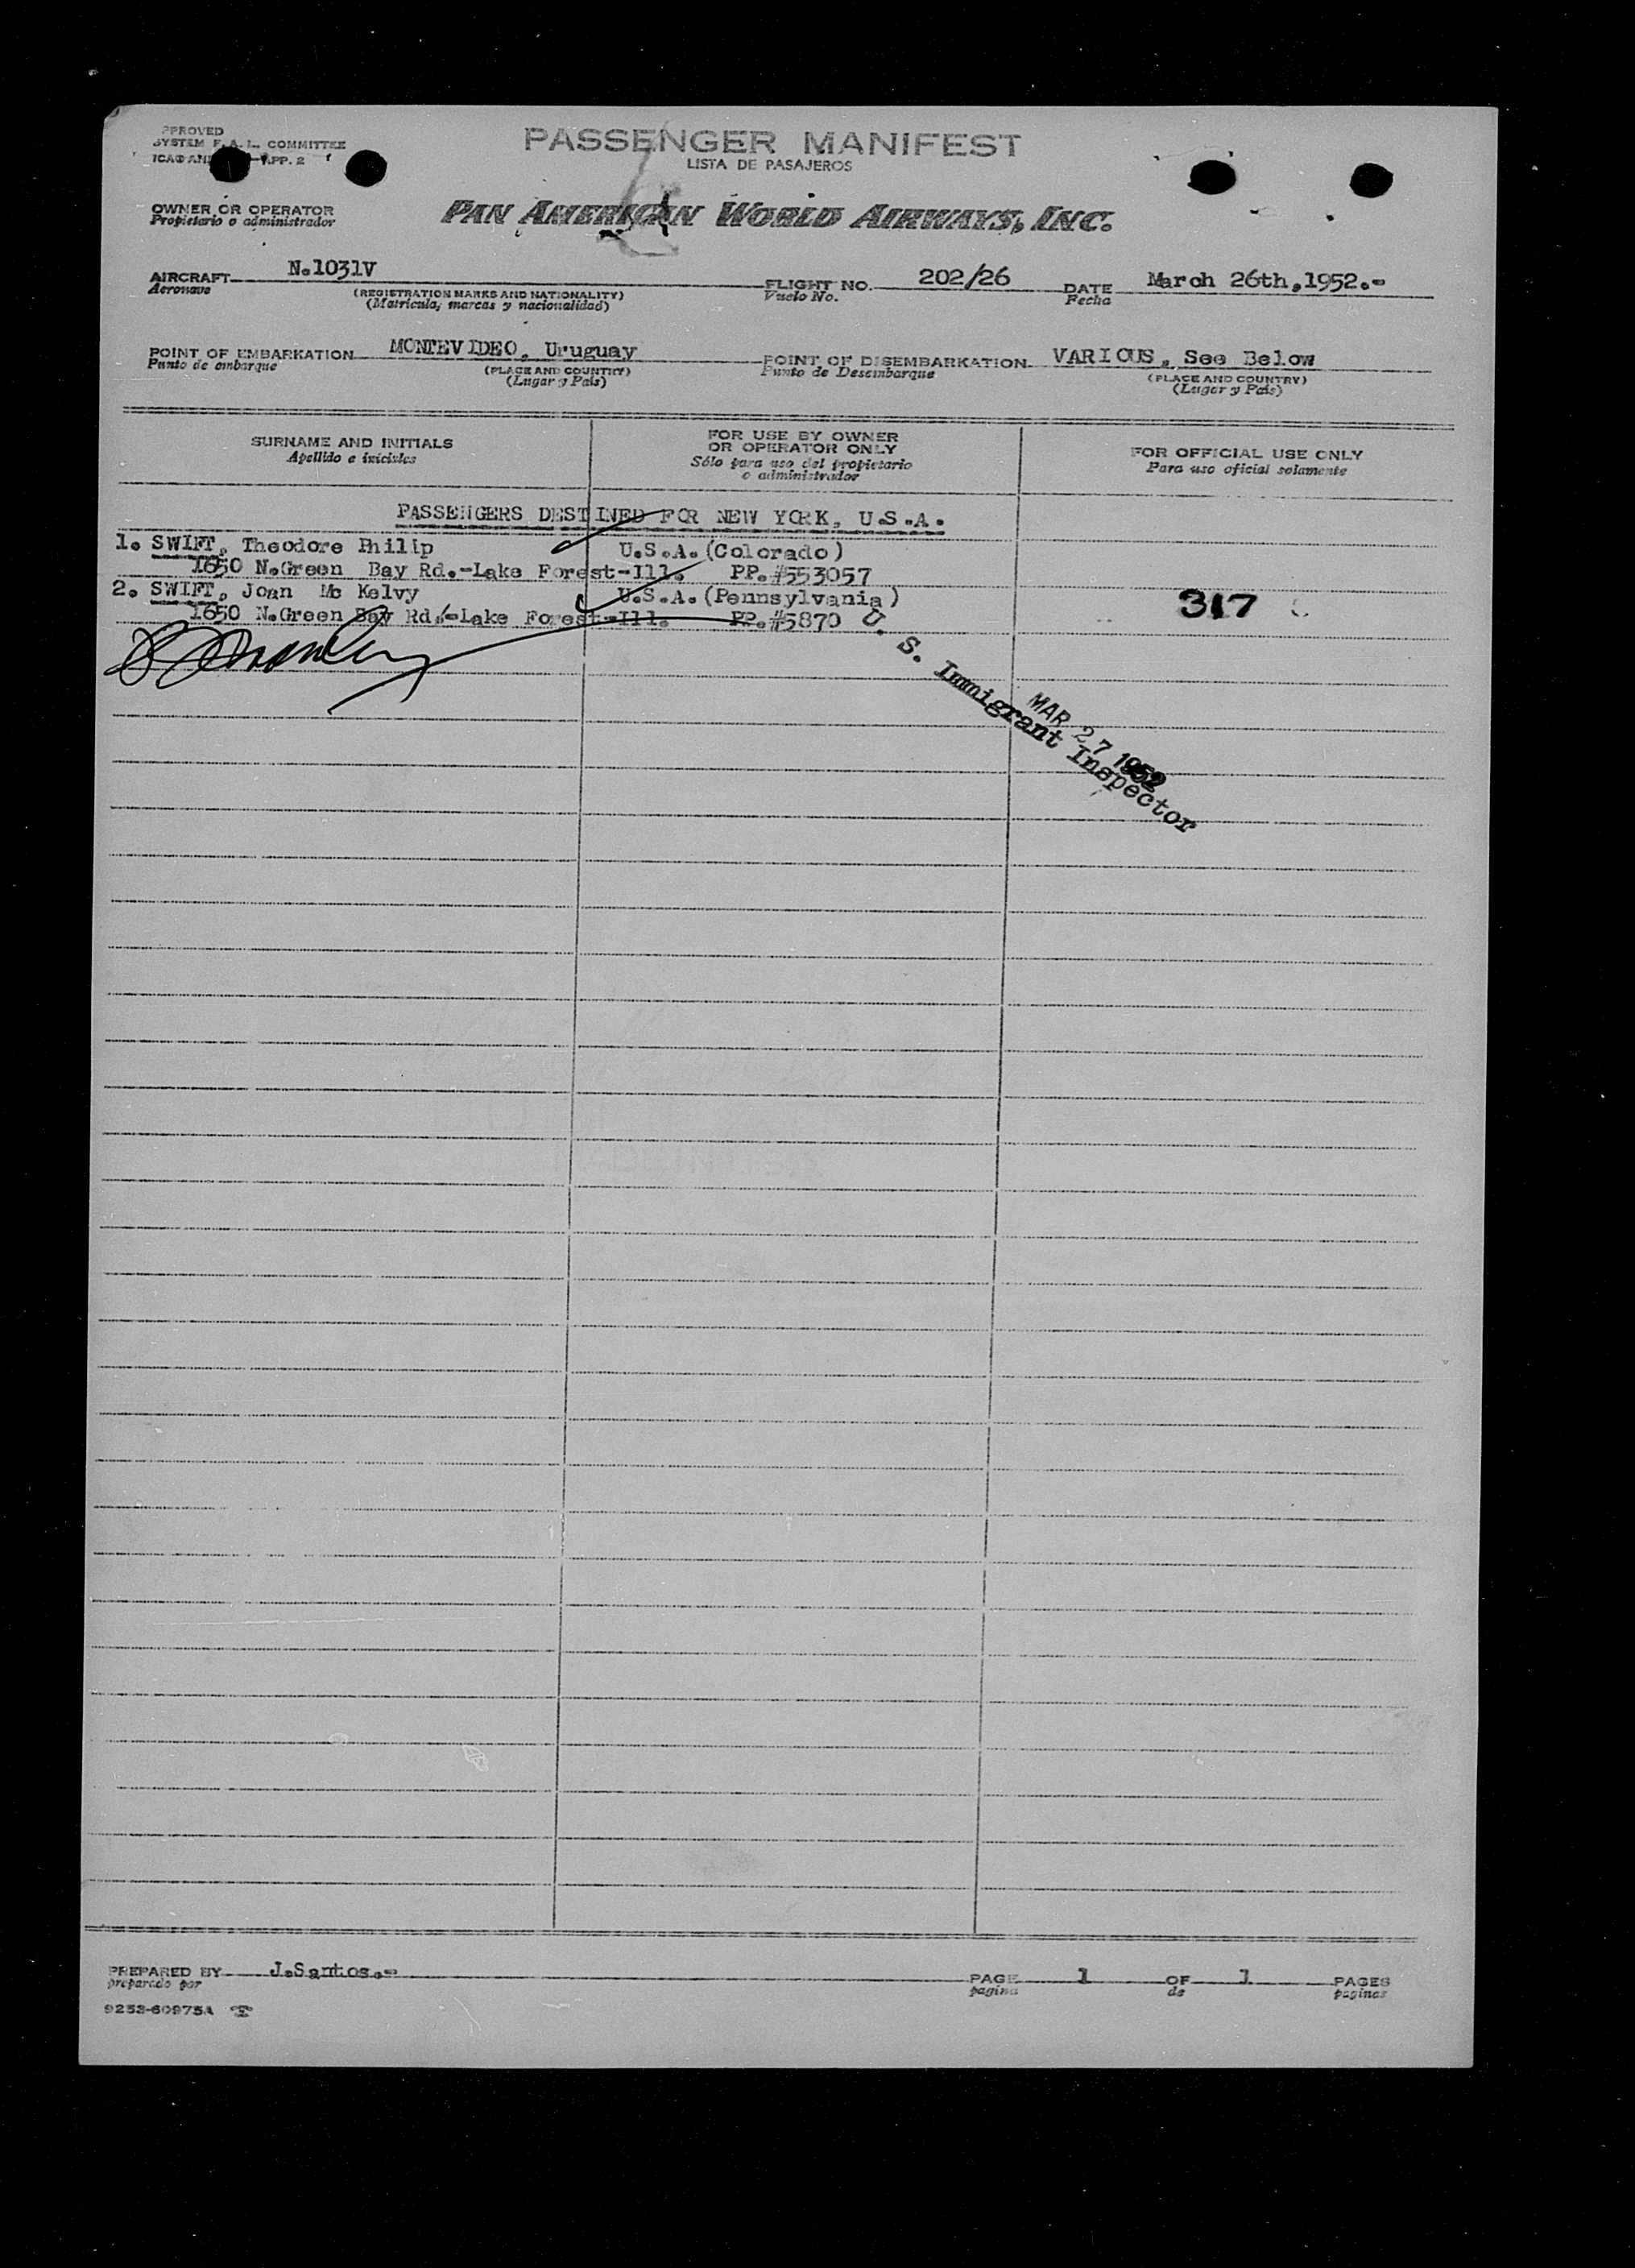 PPROVED
SYSTEM F.A.L. COMMITTEE
ICAO AN APP. 2
PASSENGER MANIFEST
LISTA DE PASAJEROS
OWNER OR OPERATOR
Propietario o administrador
PAN AMERICAN WORLD AIRWAYS, INC.
AIRCRAFT N.1031V
Aeronave
(REGISTRATION MARKS AND NATIONALITY)
(Matrícula, marcas y nacionalidad)
FLIGHT NO. 202/26
Vuelo No.
DATE March 26th,1952.-
Fecha
POINT OF EMBARKATION MONTEVIDEO, Uruguay
Punto de embarque
(PLACE AND COUNTRY)
(Lugar y País)
POINT OF DISEMBARKATION VARIOUS, See Below
Punto de Desembarque
(PLACE AND COUNTRY)
(Lugar y País)
SURNAME AND INITIALS
Apellido e iniciales
FOR USE BY OWNER
OR OPERATOR ONLY
Sólo para uso del propietario
o administrador
FOR OFFICIAL USE ONLY
Para uso oficial solamente
PASSENGERS DESTINED FOR NEW YORK, U.S.A.
1. SWIFT, Theodore Philip U.S.A.(Colorado)
1650 N.Green Bay Rd.-Lake Forest-Ill. PP.#553057
2. SWIFT, Joan Mc Kelvy U.S.A.(Pennsylvania)
1650 N.Green Bay Rd.-Lake Forest-Ill. PP.#5870
317
U. S. Immigrant Inspector
MAR 27 1952
PREPARED BY J.Santos.-
preparado por
PAGE 1 OF 1 PAGES
pagina de paginas
9253-60975A